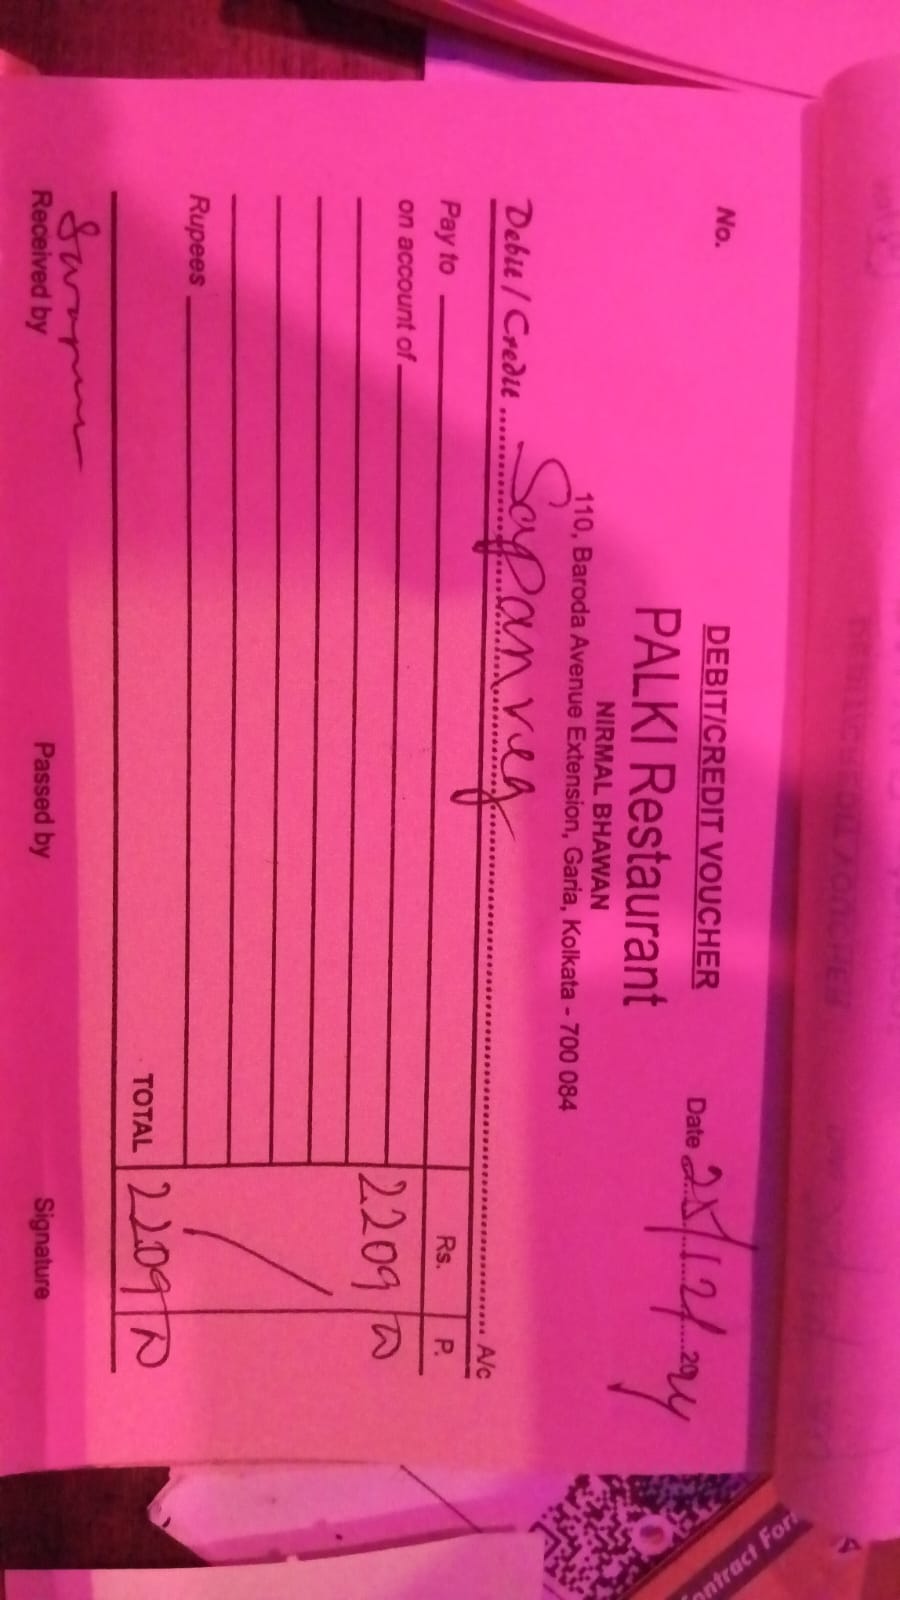 No.
DEBIT/CREDIT VOUCHER
Date 25/12/2024
PALKI Restaurant
NIRMAL BHAWAN
110, Baroda Avenue Extension, Garia, Kolkata - 700 084
Debit / Credit Sapan veg A/c
Pay to Rs. P.
on account of
2209
Rupees
TOTAL 2209
Received by Passed by Signature
ontract For